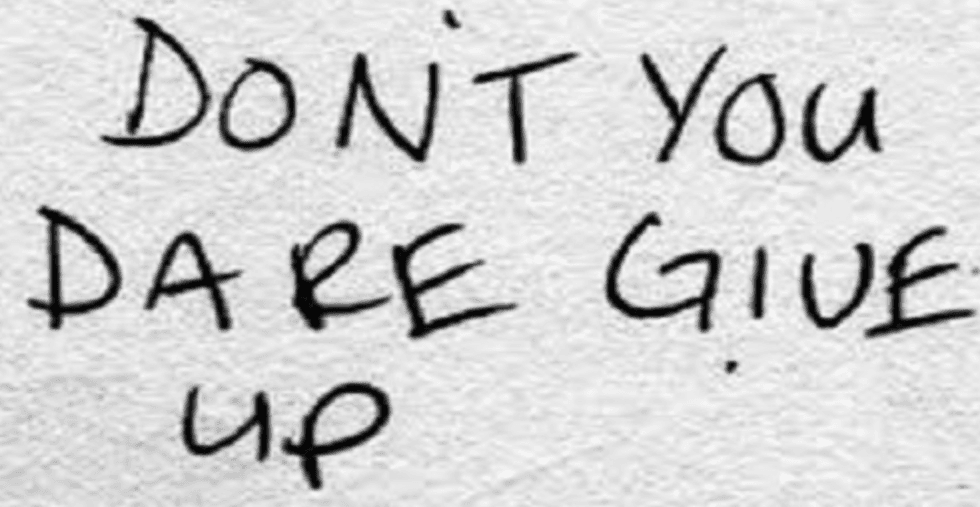 DON'T YOU
DARE GIVE
UP